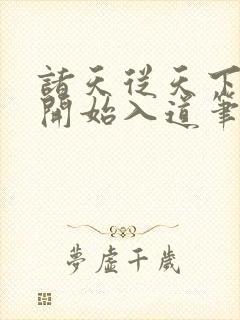 諸天從天下
開始入道筆
夢虛千歲